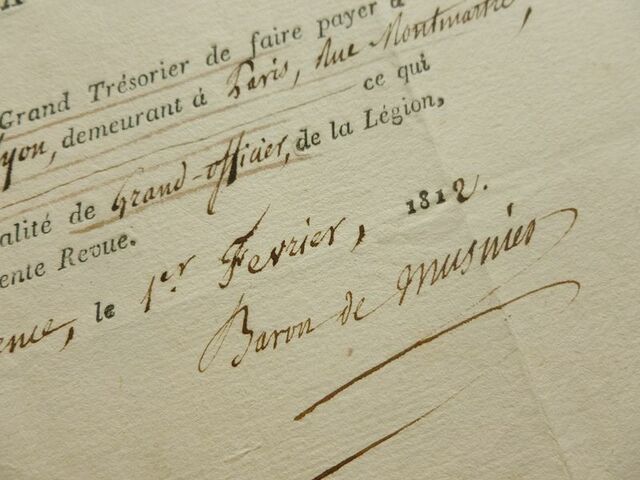 Grand Trésorier de faire payer à
yon, demeurant à Paris, Rue Montmartre,
ce qui
alité de Grand-officier, de la Légion,
ente Revue.
ence, le 1er Fevrier, 1812.
Baron de Musnier